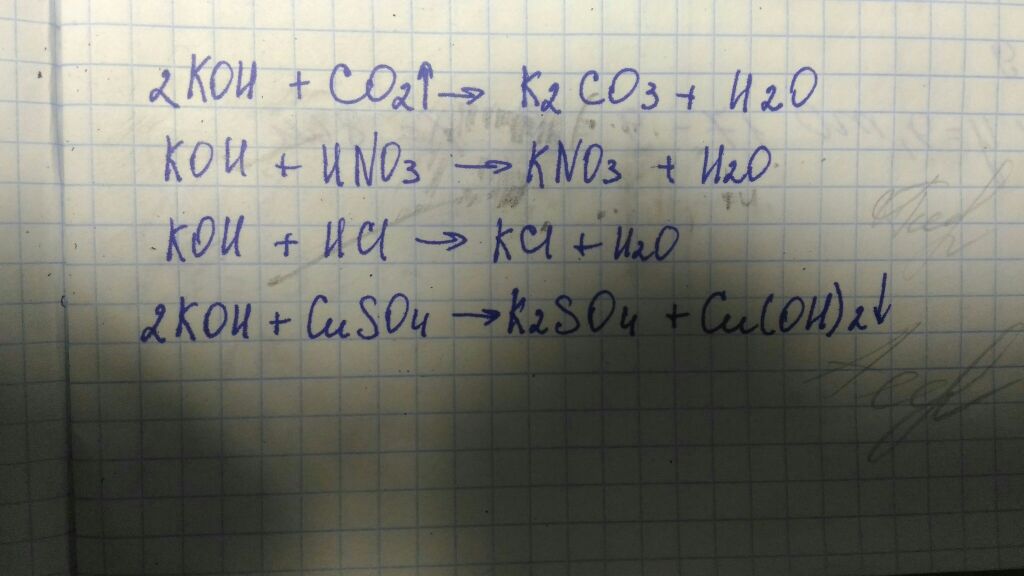 2KOH + CO2↑ → K2CO3 + H2O
KOH + HNO3 → KNO3 + H2O
KOH + HCl → KCl + H2O
2KOH + CuSO4 → K2SO4 + Cu(OH)2↓